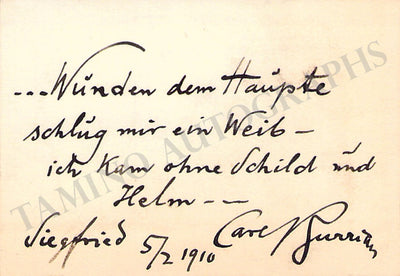 ...Wunden dem Haupte
schlug mir ein Weib –
ich kam ohne Schild und
Helm – –
Siegfried 5/2 1910 Carl Burrian
TAMINO AUTOGRAPHS